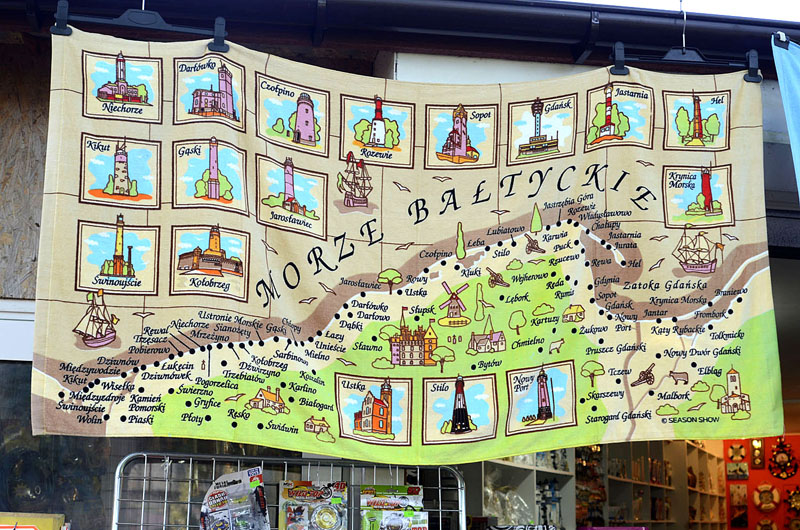 Niechorze
Darłówko
Czołpino
Rozewie
Sopot
Gdańsk
Jastarnia
Hel
Kikut
Gąski
Jarosławiec
Krynica
Morska
Świnoujście
Kołobrzeg
MORZE BAŁTYCKIE
Jastrzębia Góra
Rozewie
Władysławowo
Chałupy
Jastarnia
Jurata
Hel
Rewa
Lubiatowo
Karwia
Puck
Rzucewo
Stilo
Łeba
Czołpino
Kluki
Rowy
Ustka
Jarosławiec
Wejherowo
Reda
Rumi
Gdynia
Sopot
Gdańsk
Nowy
Port
Zatoka Gdańska
Krynica Morska
Braniewo
Frombork
Jantar
Kąty Rybackie
Tolkmicko
Darłówko
Darłowo
Dąbki
Łazy
Unieście
Mielno
Słupsk
Sławno
Lębork
Kartuzy
Żukowo
Chmielno
Bytów
Pruszcz Gdański
Nowy Dwór Gdański
Elbląg
Tczew
Malbork
Skarszewy
Starogard Gdański
Ustronie Morskie
Gąski
Chłopy
Sianożęty
Niechorze
Mrzeżyno
Rewal
Trzęsacz
Pobierowo
Dziwnów
Międzywodzie
Kikut
Międzyzdroje
Świnoujście
Wolin
Wisełka
Łukęcin
Dziwnówek
Kamień
Pomorski
Piaski
Pogorzelica
Świerzno
Gryfice
Płoty
Kołobrzeg
Dźwirzyno
Trzebiatów
Resko
Świdwin
Sarbinowo
Koszalin
Karlino
Białogard
Ustka
Stilo
Nowy
Port
© SEASON SHOW